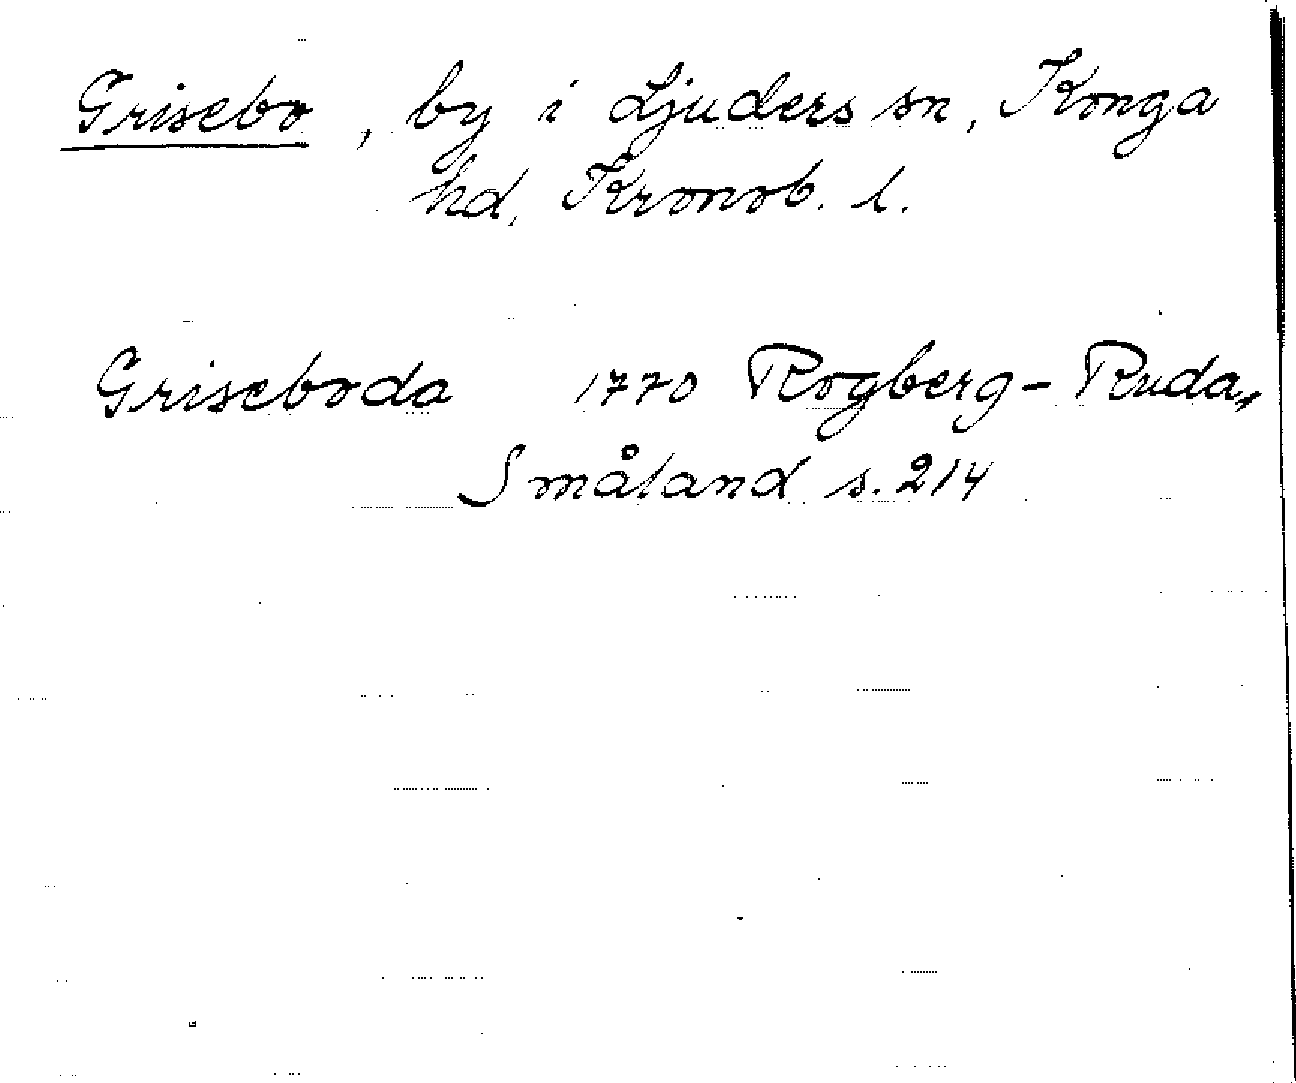 Grisebo, by i Ljuders sn, Konga
hd, Kronob. l.
Griseboda 1770 Rogberg-Ruda,
Småland s. 214